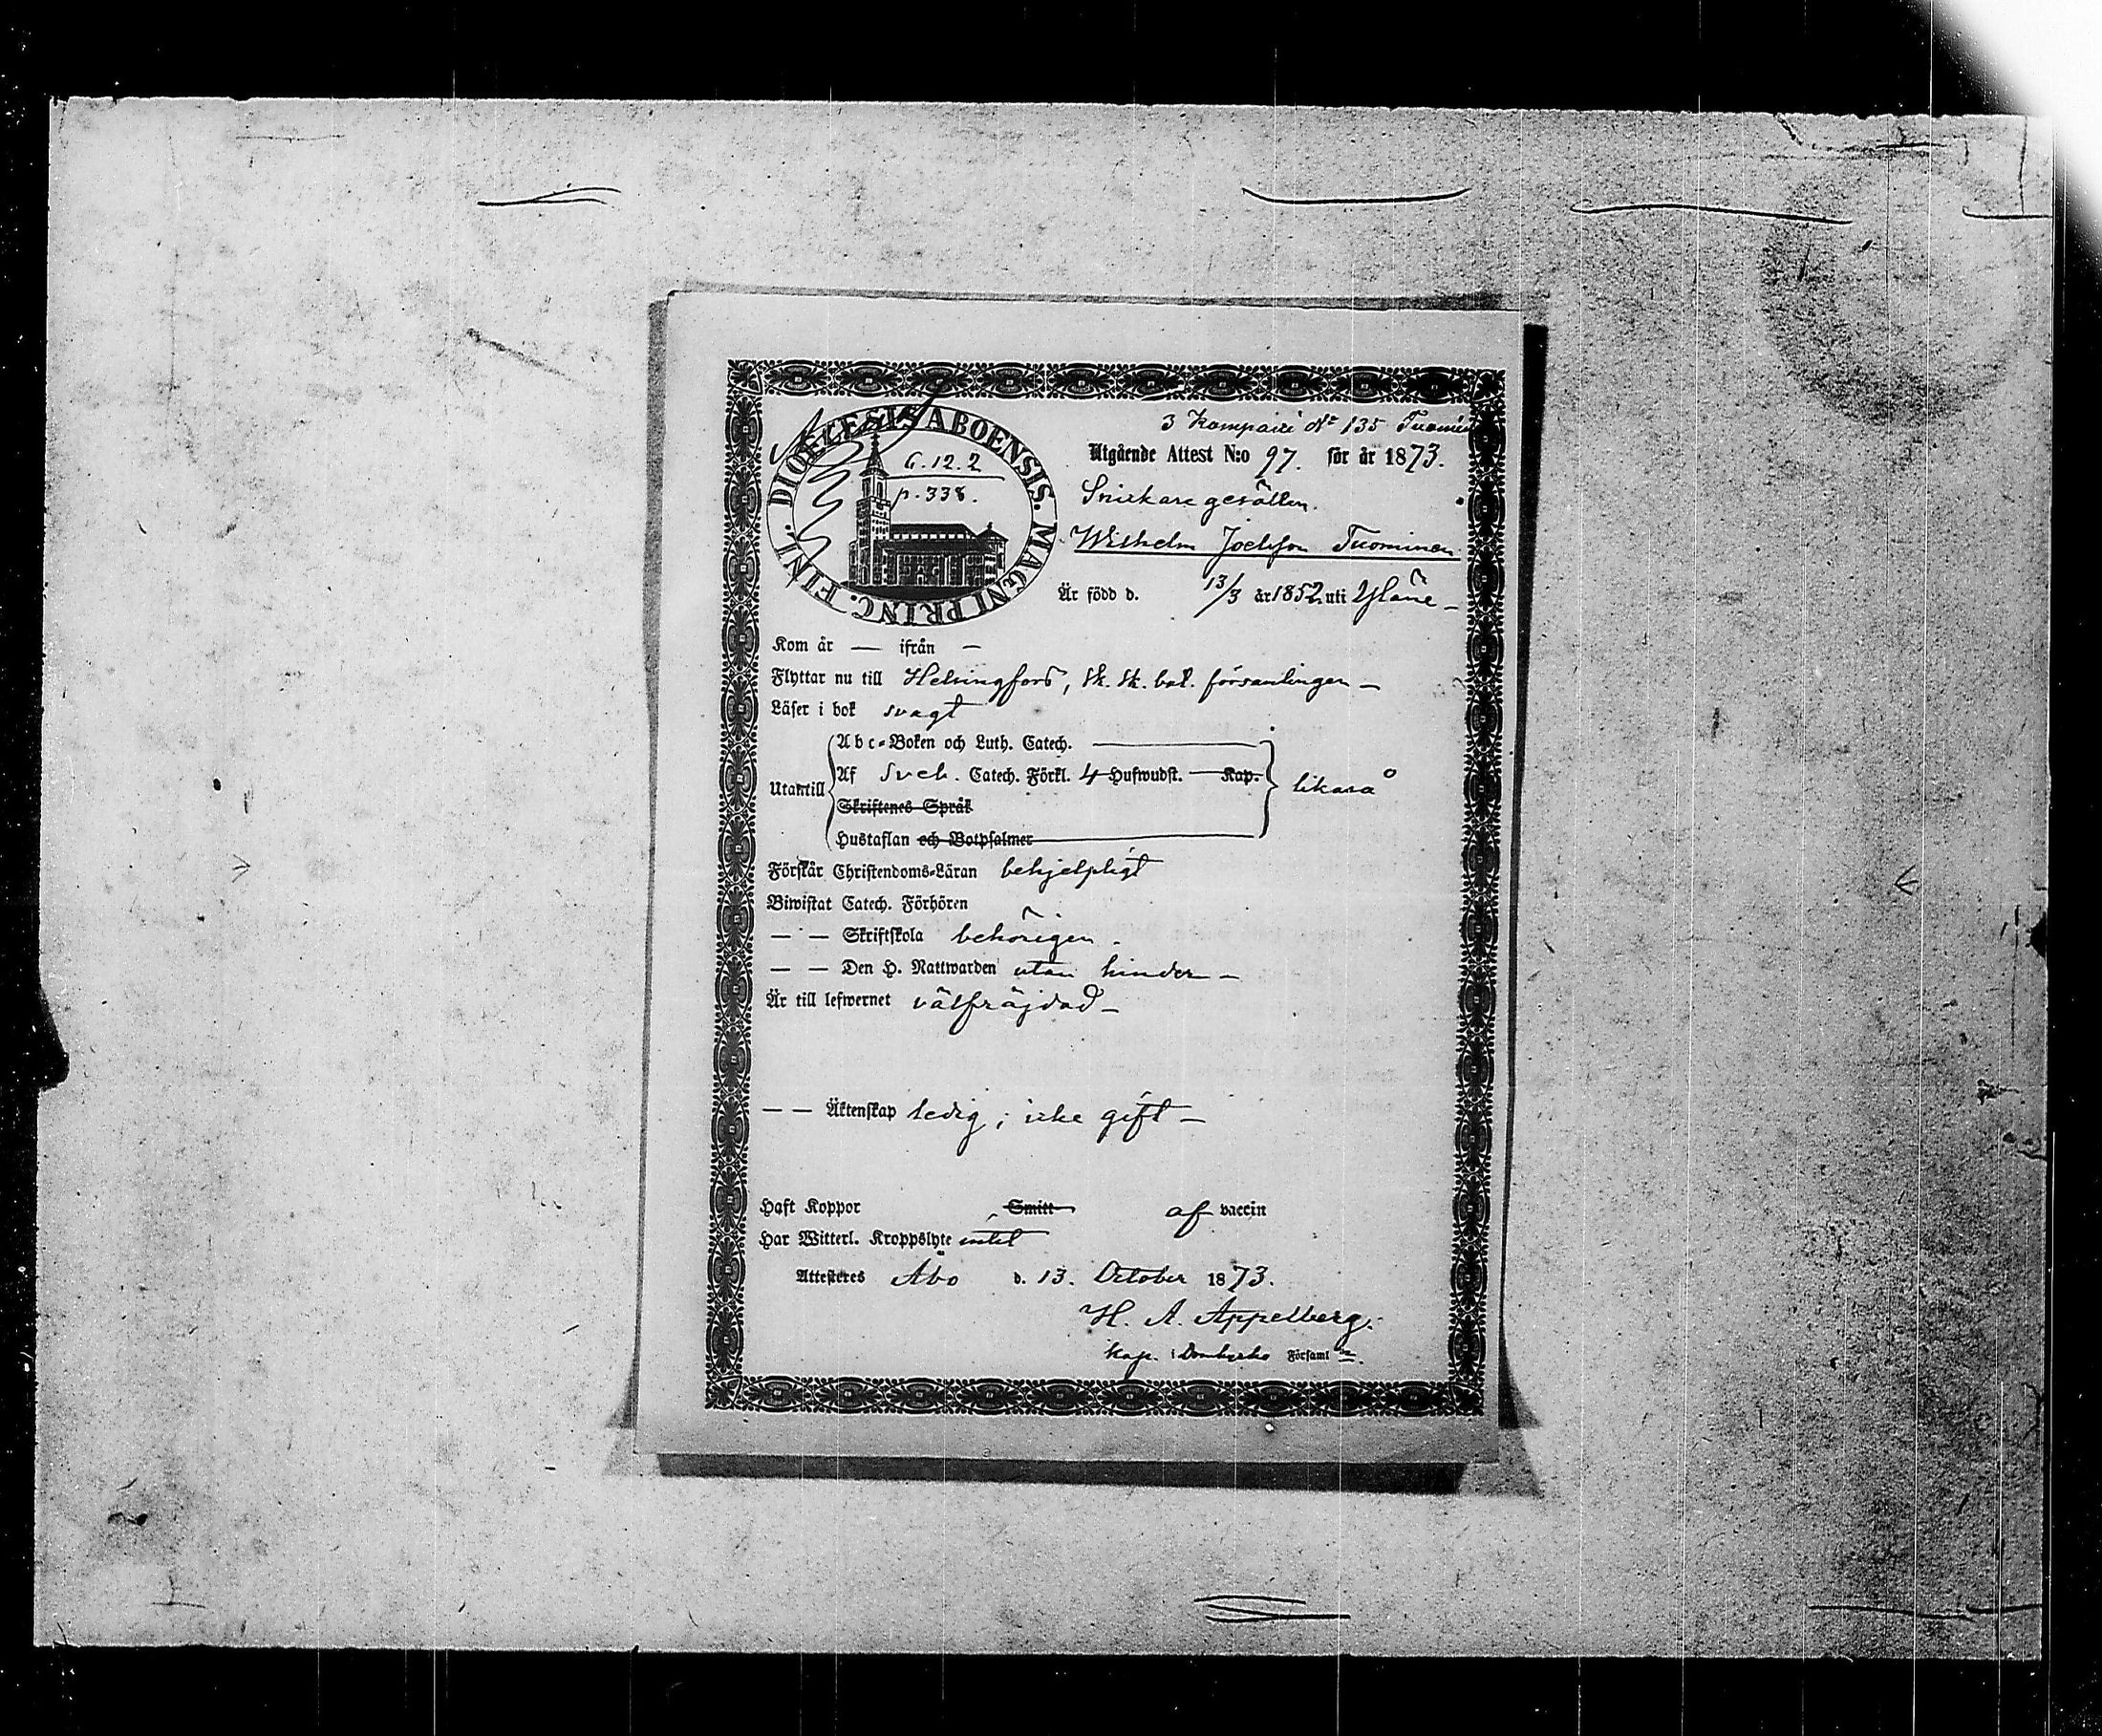 3 Kompani No 135 Tuominen
DIOECESIS ABOENSIS. MAGNI PRINC. FINL.
G. 12. 2
p. 338.
Utgående Attest N:o 97. för år 1873.
Snickare gesällen.
Wilhelm Joelsson Tuominen
Är född d. 13/3 år 1852 uti Yläne –
Kom år — ifrån —
Flyttar nu till Helsingfors, sk. sk. bat. församlingen –
Läser i bok svagt
Utantill
Abc-Boken och Luth. Catech.
Af Sveb. Catech. Förkl. 4 Hufwudst. — Kap.
likaså
Skriftenes Språk
Hustaflan och Botpsalmer
Förstår Christendoms-Läran behjelpligt
Biwistat Catech. Förhören
— — Skriftskola behörigen.
— — Den H. Nattwarden utan hinder –
Är till lefwernet välfräjdad –
— — Äktenskap ledig; icke gift –
Haft Koppor Smitt af vaccin
Har Witterl. Kroppslyte intet
Attesteres Åbo d. 13. October 1873.
H. A. Appelberg.
Kap. i Domkyrko Församl n.